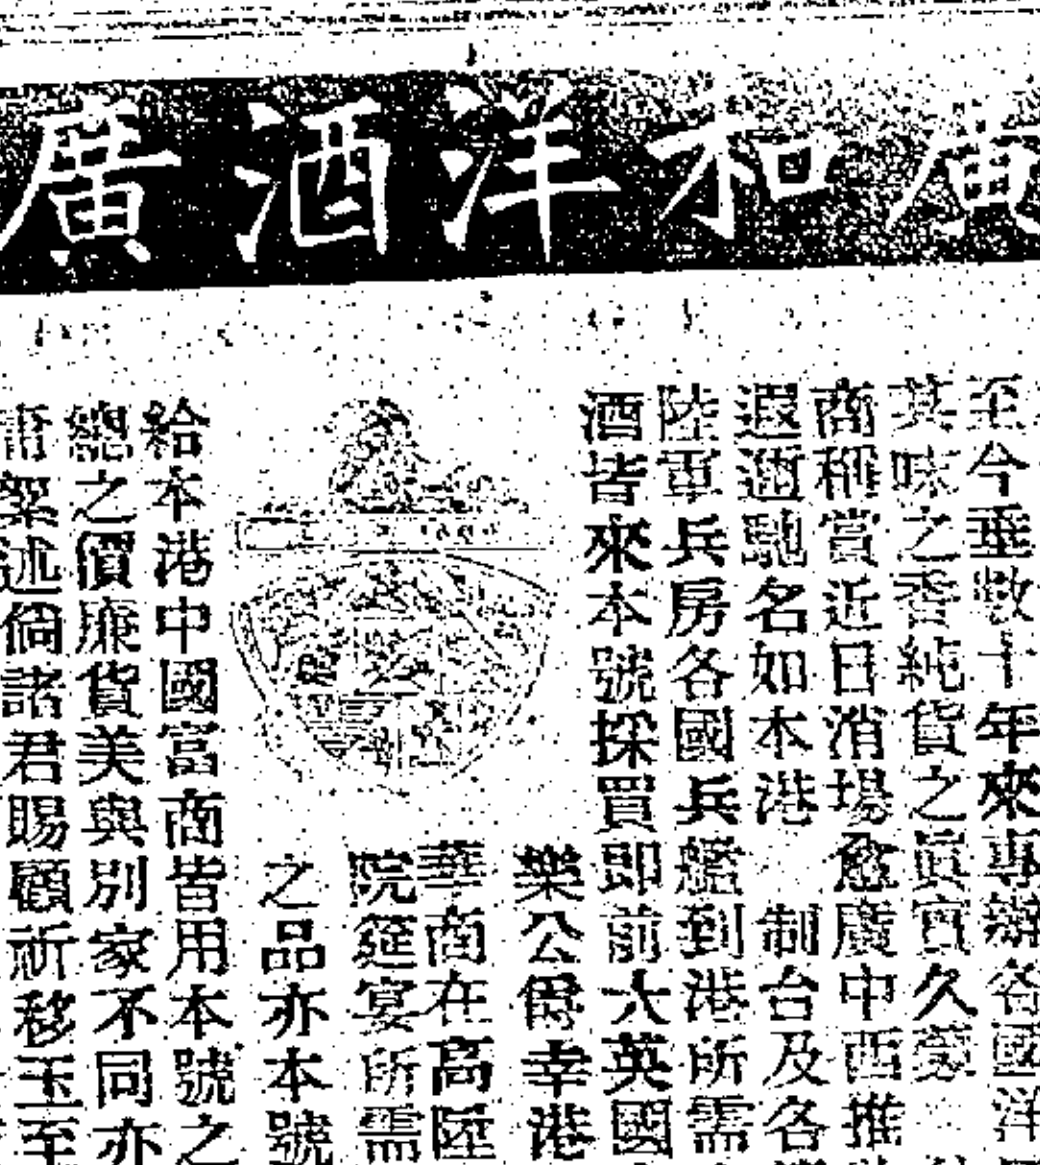 廣和洋酒廣
至今垂數十年來專辦各國洋
其味之香純貨之眞實久蒙
商稱賞近日消場愈廣中西推
遐邇馳名如本港 制台及各
陸軍兵房各國兵艦到港所需
酒皆來本號採買卽前大英國
樂公爵幸港
華商在高陞
院筵宴所需
之品亦本號
給本港中國富商皆用本號之
總之價廉貨美與別家不同亦
述倘諸君賜顧祈移玉至